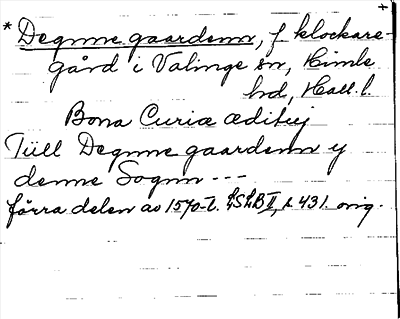 * Degnne gaardenn, f. klockare-
gård i Valinge sn, Himle
hd, Hall. l.
Bona Curiæ ædituj
Tiill Degnne gaardenn y
denne Sognn ---
förra delen av 1570-t. LSLB II, s. 431. orig.